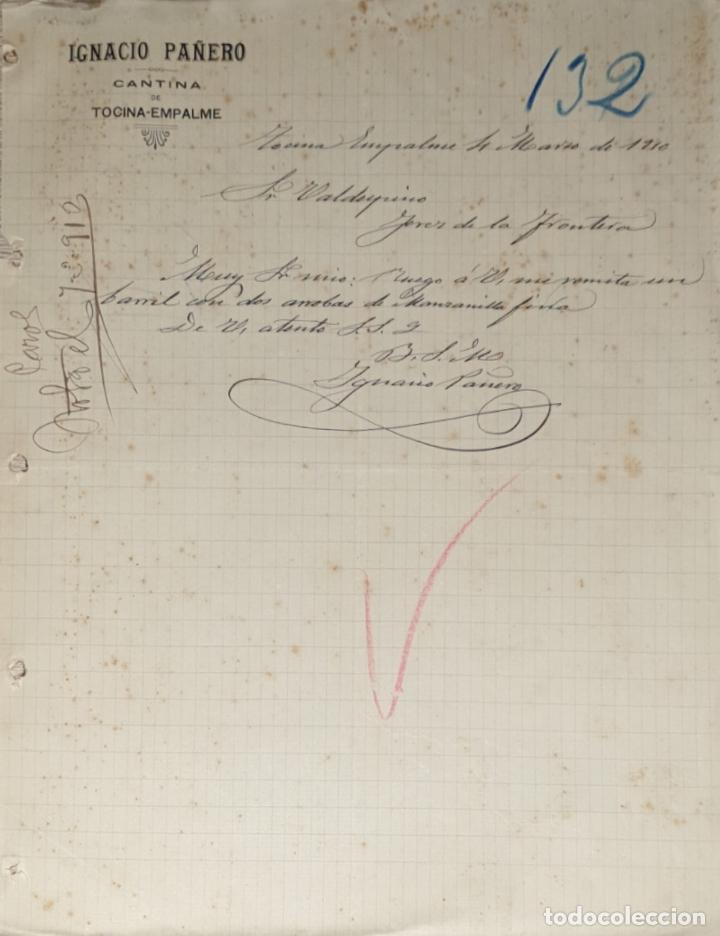 IGNACIO PAÑERO
CANTINA
DE
TOCINA-EMPALME
132
Tocina Empalme 4 Marzo de 1910
Sr Valdespino
Jerez de la Frontera
Muy Sr mio: Ruego á V, me remita un
barril con dos arrobas de Manzanilla fina
De V, atento S. S. 2
B. S. M
Ignacio Pañero
7-3-912
todocoleccion